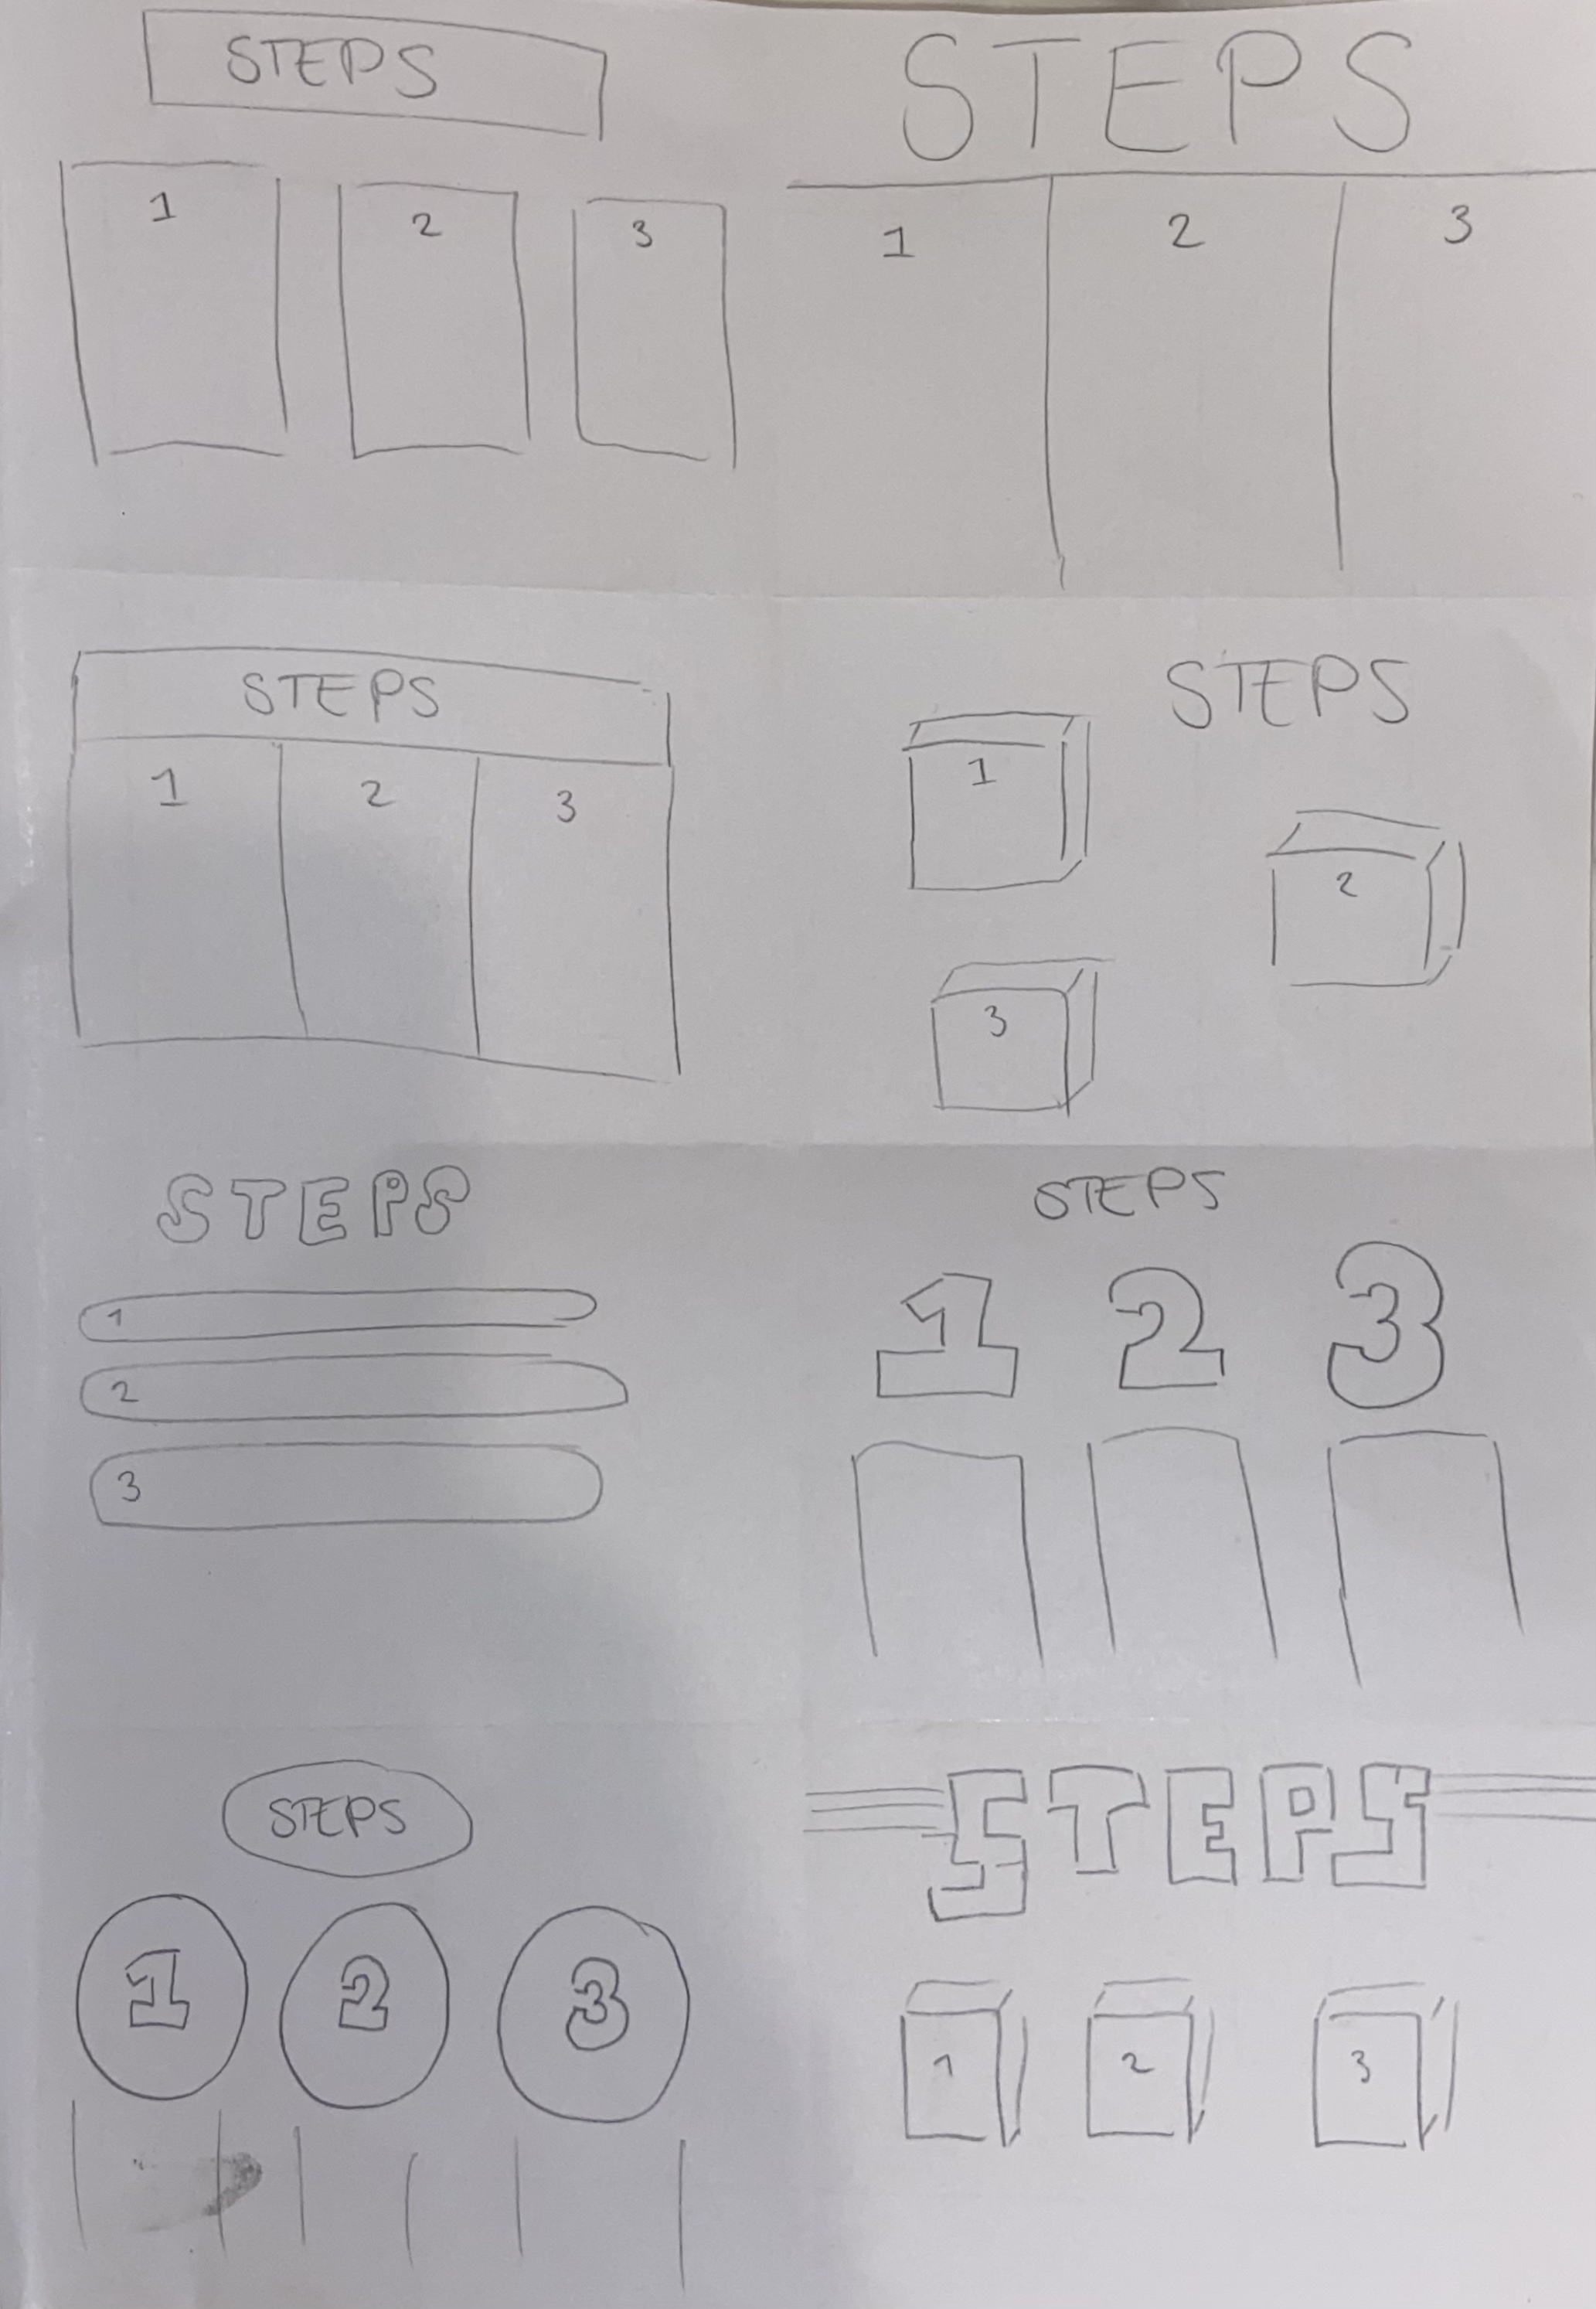 STEPS
1 2 3
STEPS
1 2 3
STEPS
1 2 3
STEPS
1
2
3
STEPS
1
2
3
STEPS
1 2 3
STEPS
1 2 3
STEPS
1 2 3